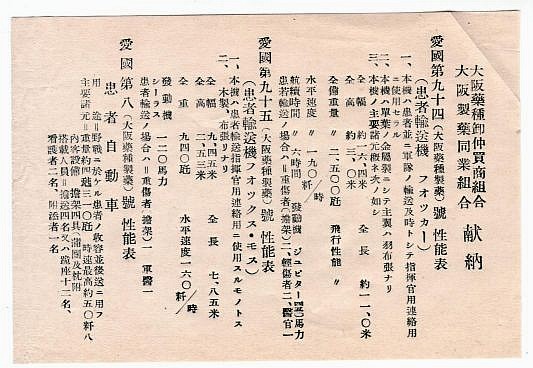 大阪藥種卸仲買商組合
大阪製藥同業組合 献納
愛國第九十四(大阪藥種製藥)號 性能表
(患者輸送機 フオッカー)
一、本機ハ患者並ニ軍隊ノ輸送及時トシテ指揮官用連絡用
ニ使用セラル
二、本機ハ單葉ノ金屬製ニシテ主翼ハ羽布張ナリ
三、本機ノ主要諸元概ネ次ノ如シ
全幅 約一六、四米 全長 約一一、〇米
全高 約三、〇米
全備重量 〃二、五〇〇瓩 飛行性能 〃
水平速度 〃一九〇粁/時 發動機 ジュピター 馬力
航續時間 〃六時間
患者輸送ノ場合ハ=重傷者(擔架)二、輕傷者二、醫官一
愛國第九十五(大阪藥種製藥)號 性能表
(患者輸送機フオックス・モス)
一、本機ハ患者輸送指揮官用連絡用ニ使用スルモノトス
二、木製、布張リ複葉
全幅 九、四五米 全長 七、八五米
全高 二、五三米
全重 九四〇瓩 水平速度一六〇粁/時
發動機 一二〇馬力
シーラス
患者輸送ノ場合ハ=重傷者(擔架)一 軍醫一
愛國第八(大阪藥種製藥)號 性能表
患者自動車
用途=野戰ニ於ケル患者ノ收容並後送ニ用フ
主要諸元=重量約四瓲三一〇瓩 時速最高約五〇粁八
内容設備 擔架四具(蒲團及枕附
搭載人員=擔送四名又ハ跪座十二名、
看護者二名、附添者一名